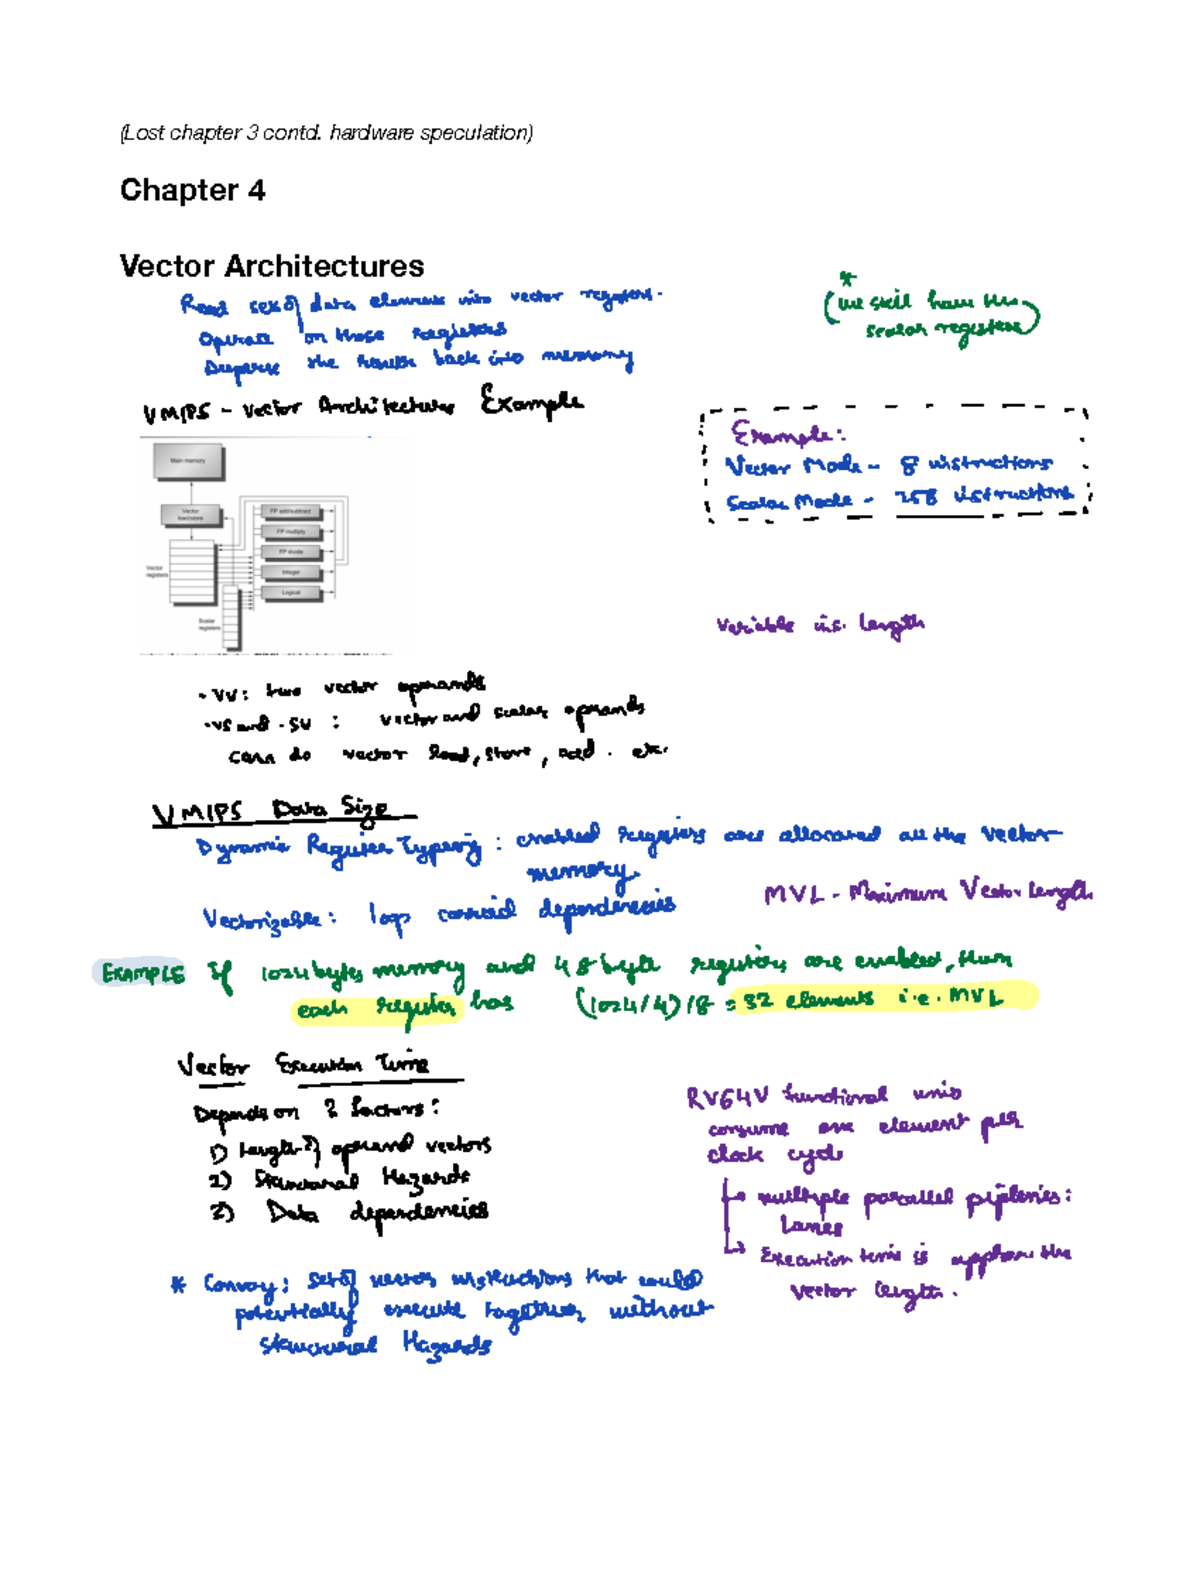 (Lost chapter 3 contd. hardware speculation)
Chapter 4
Vector Architectures
Read sets of data elements into vector registers.
Operate on those Registers
Disperse the results back into memory
*
(we still have the
scalar registers)
VMIPS - Vector Architecture Example
Example:
Vector Mode - 8 instructions
Scalar Mode - 258 instructions
Main memory
Vector
load/store
FP add/subtract
FP multiply
FP divide
Integer
Logical
Vector
registers
Scalar
registers
Variable ins. length
· VV: two vector operands
· VS and · SV : vector and scalar operands
can do vector load, store, add. etc.
VMIPS Data Size
Dynamic Register Typing : enabled registers are allocated all the vector
memory.
Vectorizable: loop carried dependencies
MVL - Maximum Vector Length
EXAMPLE If 1024 bytes memory and 4 8 byte registers are enabled, then
each register has (1024/4)/8 = 32 elements i.e. MVL
Vector Execution Time
Depends on 3 factors:
1) Length of operand vectors
2) Structural Hazards
3) Data dependencies
RV64V functional units
consume one element per
clock cycle
multiple parallel pipelines:
Lanes
Execution time is approx. the
vector length.
* Convoy: Set of vector instructions that could
potentially execute together without
structural Hazards